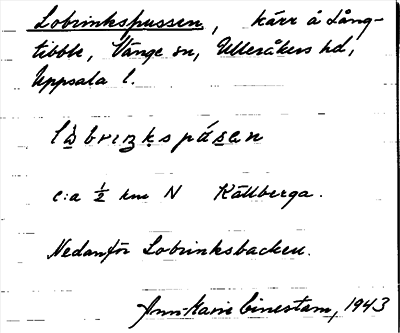 Lobrinkspussen, kärr å Lång-
tibble, Vänge sn, Ulleråkers hd,
Uppsala l.
c:a ½ km N Källberga.
Nedanför Lobrinksbacken.
Ann-Marie Cinestam, 1943